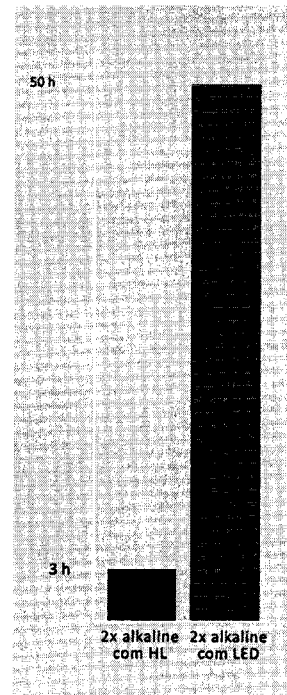 50 h
3 h
2x alkaline
com HL
2x alkaline
com LED